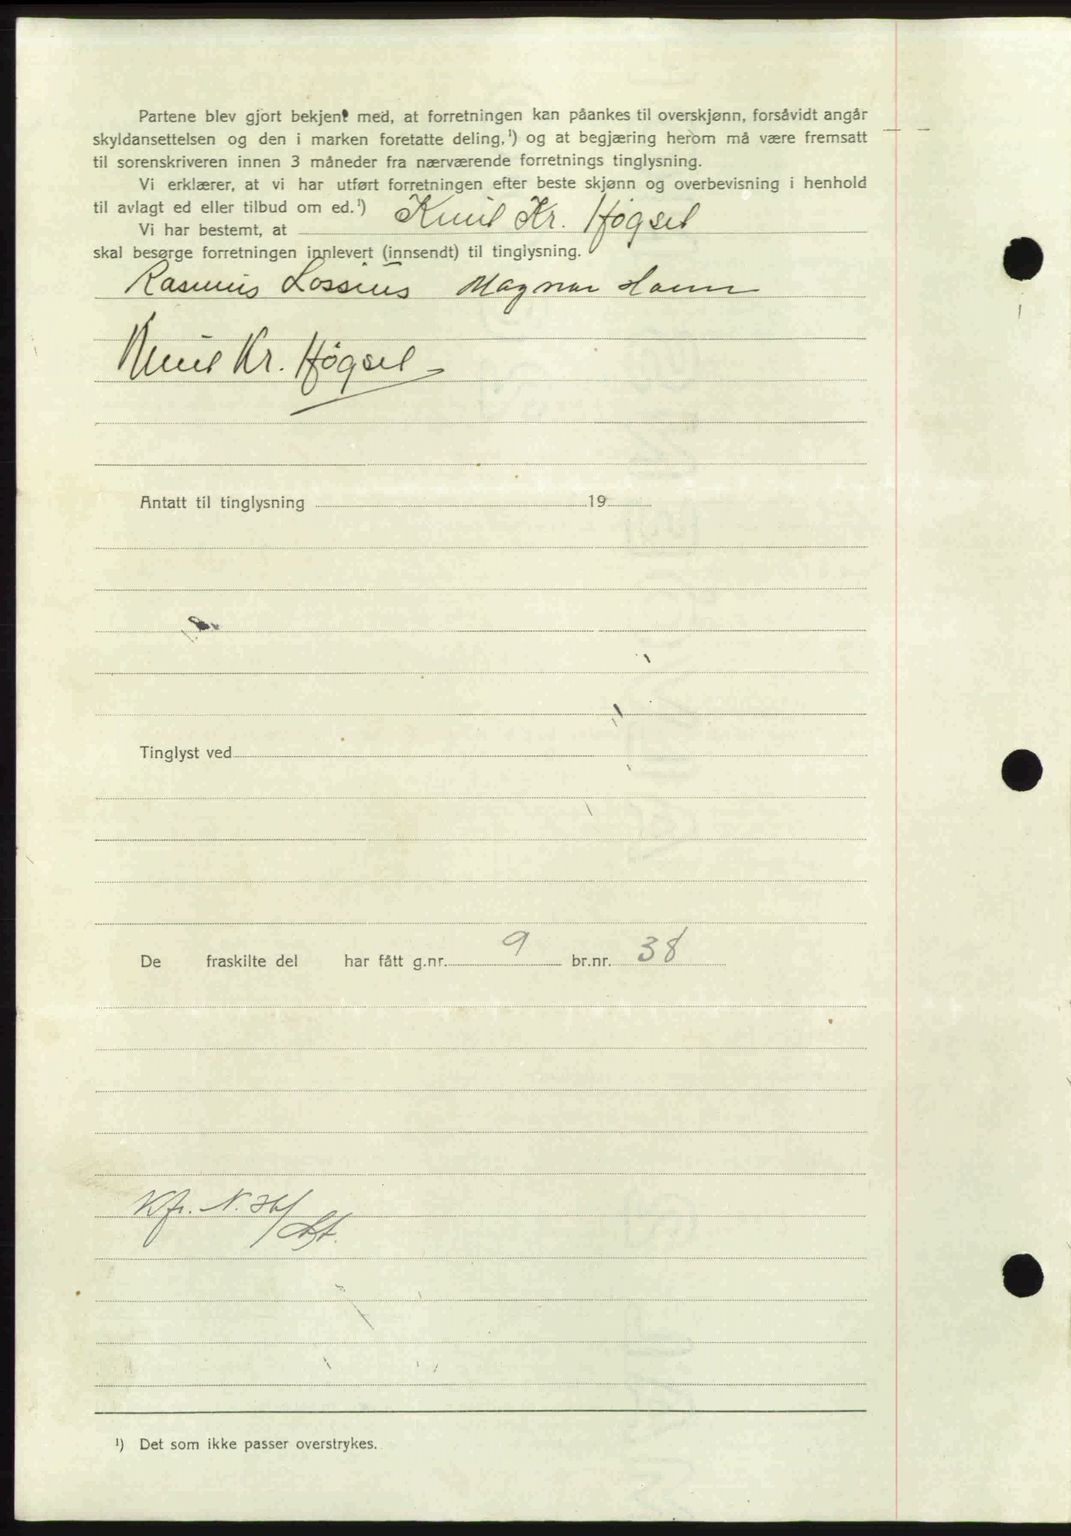 Partene blev gjort bekjent med, at forretningen kan påankes til overskjønn, forsåvidt angår
skyldansettelsen og den i marken foretatte deling,¹) og at begjæring herom må være fremsatt
til sorenskriveren innen 3 måneder fra nærværende forretnings tinglysning.
Vi erklærer, at vi har utført forretningen efter beste skjønn og overbevisning i henhold
til avlagt ed eller tilbud om ed.¹)
Vi har bestemt, at Knut Kr. Høgset
skal besørge forretningen innlevert (innsendt) til tinglysning.
Rasmus Lossius Magnar
Knut Kr. Høgset
Antatt til tinglysning 19
Tinglyst ved
De fraskilte del har fått g.nr. 9 br.nr. 38
Kfr. N.
¹) Det som ikke passer overstrykes.